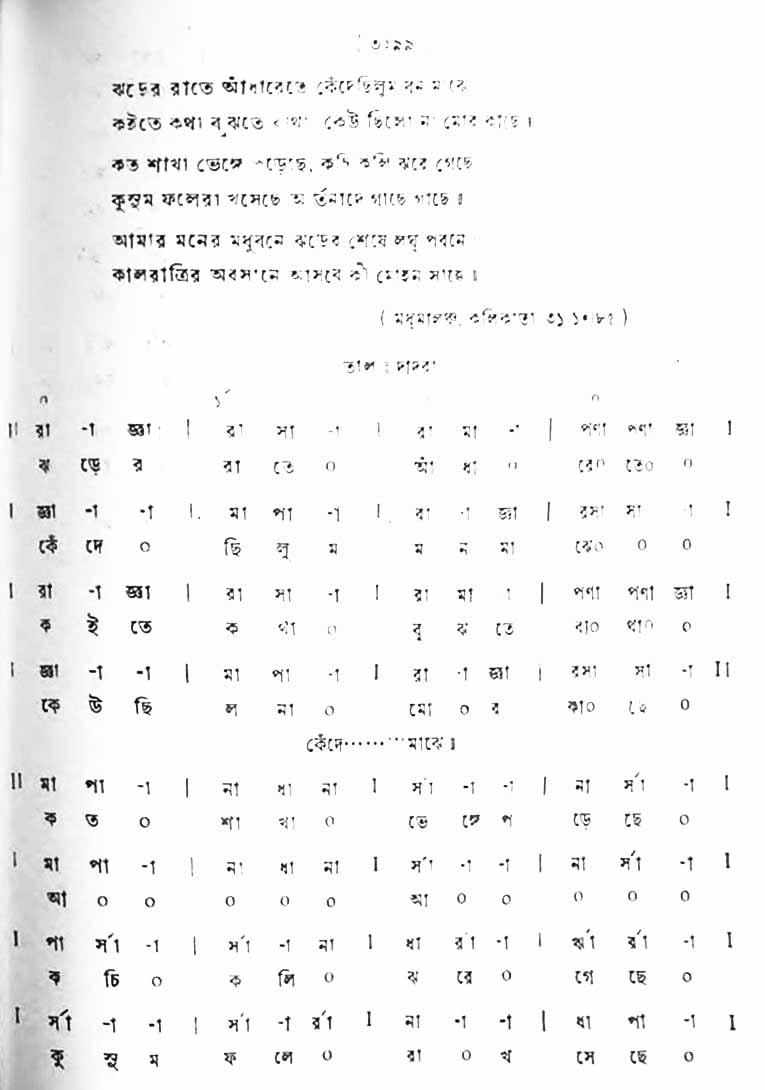 ( ৩২৯৯
ঝড়ের রাতে আঁধারেতে কেঁদেছিলুম বন মাঝে
কইতে কথা বুঝতে ব্যথা কেউ ছিলো না মোর কাছে ৷
কত শাখা ভেঙ্গে পড়েছে, কচি কলি ঝরে গেছে
কুসুম ফলেরা খসেছে আর্তনাদে গাছে গাছে ॥
আমার মনের মধুবনে ঝড়ের শেষে লঘু পবনে
কালরাত্রির অবসানে আসবে কী মোহন সাজে ॥
( মধুমালঞ্চ, কলিকাতা )
তাল : দাদরা
০ ১´ ০
II রা -া জ্ঞা | রা সা -া I রা মা -া | পণা পণা জ্ঞা I
ঝ ড়ে র রা তে ০ আঁ ধা ০ রে০ তে০ ০
I জ্ঞা -া -া | মা পা -া I রা -া জ্ঞা | রসা সা -া I
কেঁ দে ০ ছি লু ম ম ন মা ঝে০ ০ ০
I রা -া জ্ঞা | রা সা -া I রা মা -া | পণা পণা জ্ঞা I
ক ই তে ক থা ০ বু ঝ তে ব্যা০ থা০ ০
I জ্ঞা -া -া | মা পা -া I রা -া জ্ঞা | রসা সা -া II
কে উ ছি ল না ০ মো ০ র কা০ ছে ০
কেঁদে·········মাঝে ॥
II মা পা -া | না ধা না I র্সা -া -া | না র্সা -া I
ক ত ০ শা খা ০ ভে ঙ্গে প ড়ে ছে ০
I মা পা -া | না ধা না I র্সা -া -া | না র্সা -া I
আ ০ ০ ০ ০ ০ আ ০ ০ ০ ০ ০
I পা র্সা -া | র্সা -া না I ধা র্রা -া | র্ঋা র্রা -া I
ক চি ০ ক লি ০ ঝ রে ০ গে ছে ০
I র্সা -া -া | র্সা -া র্রা I না -া -া | ধা পা -া I
কু সু ম ফ লে ০ রা ০ খ সে ছে ০